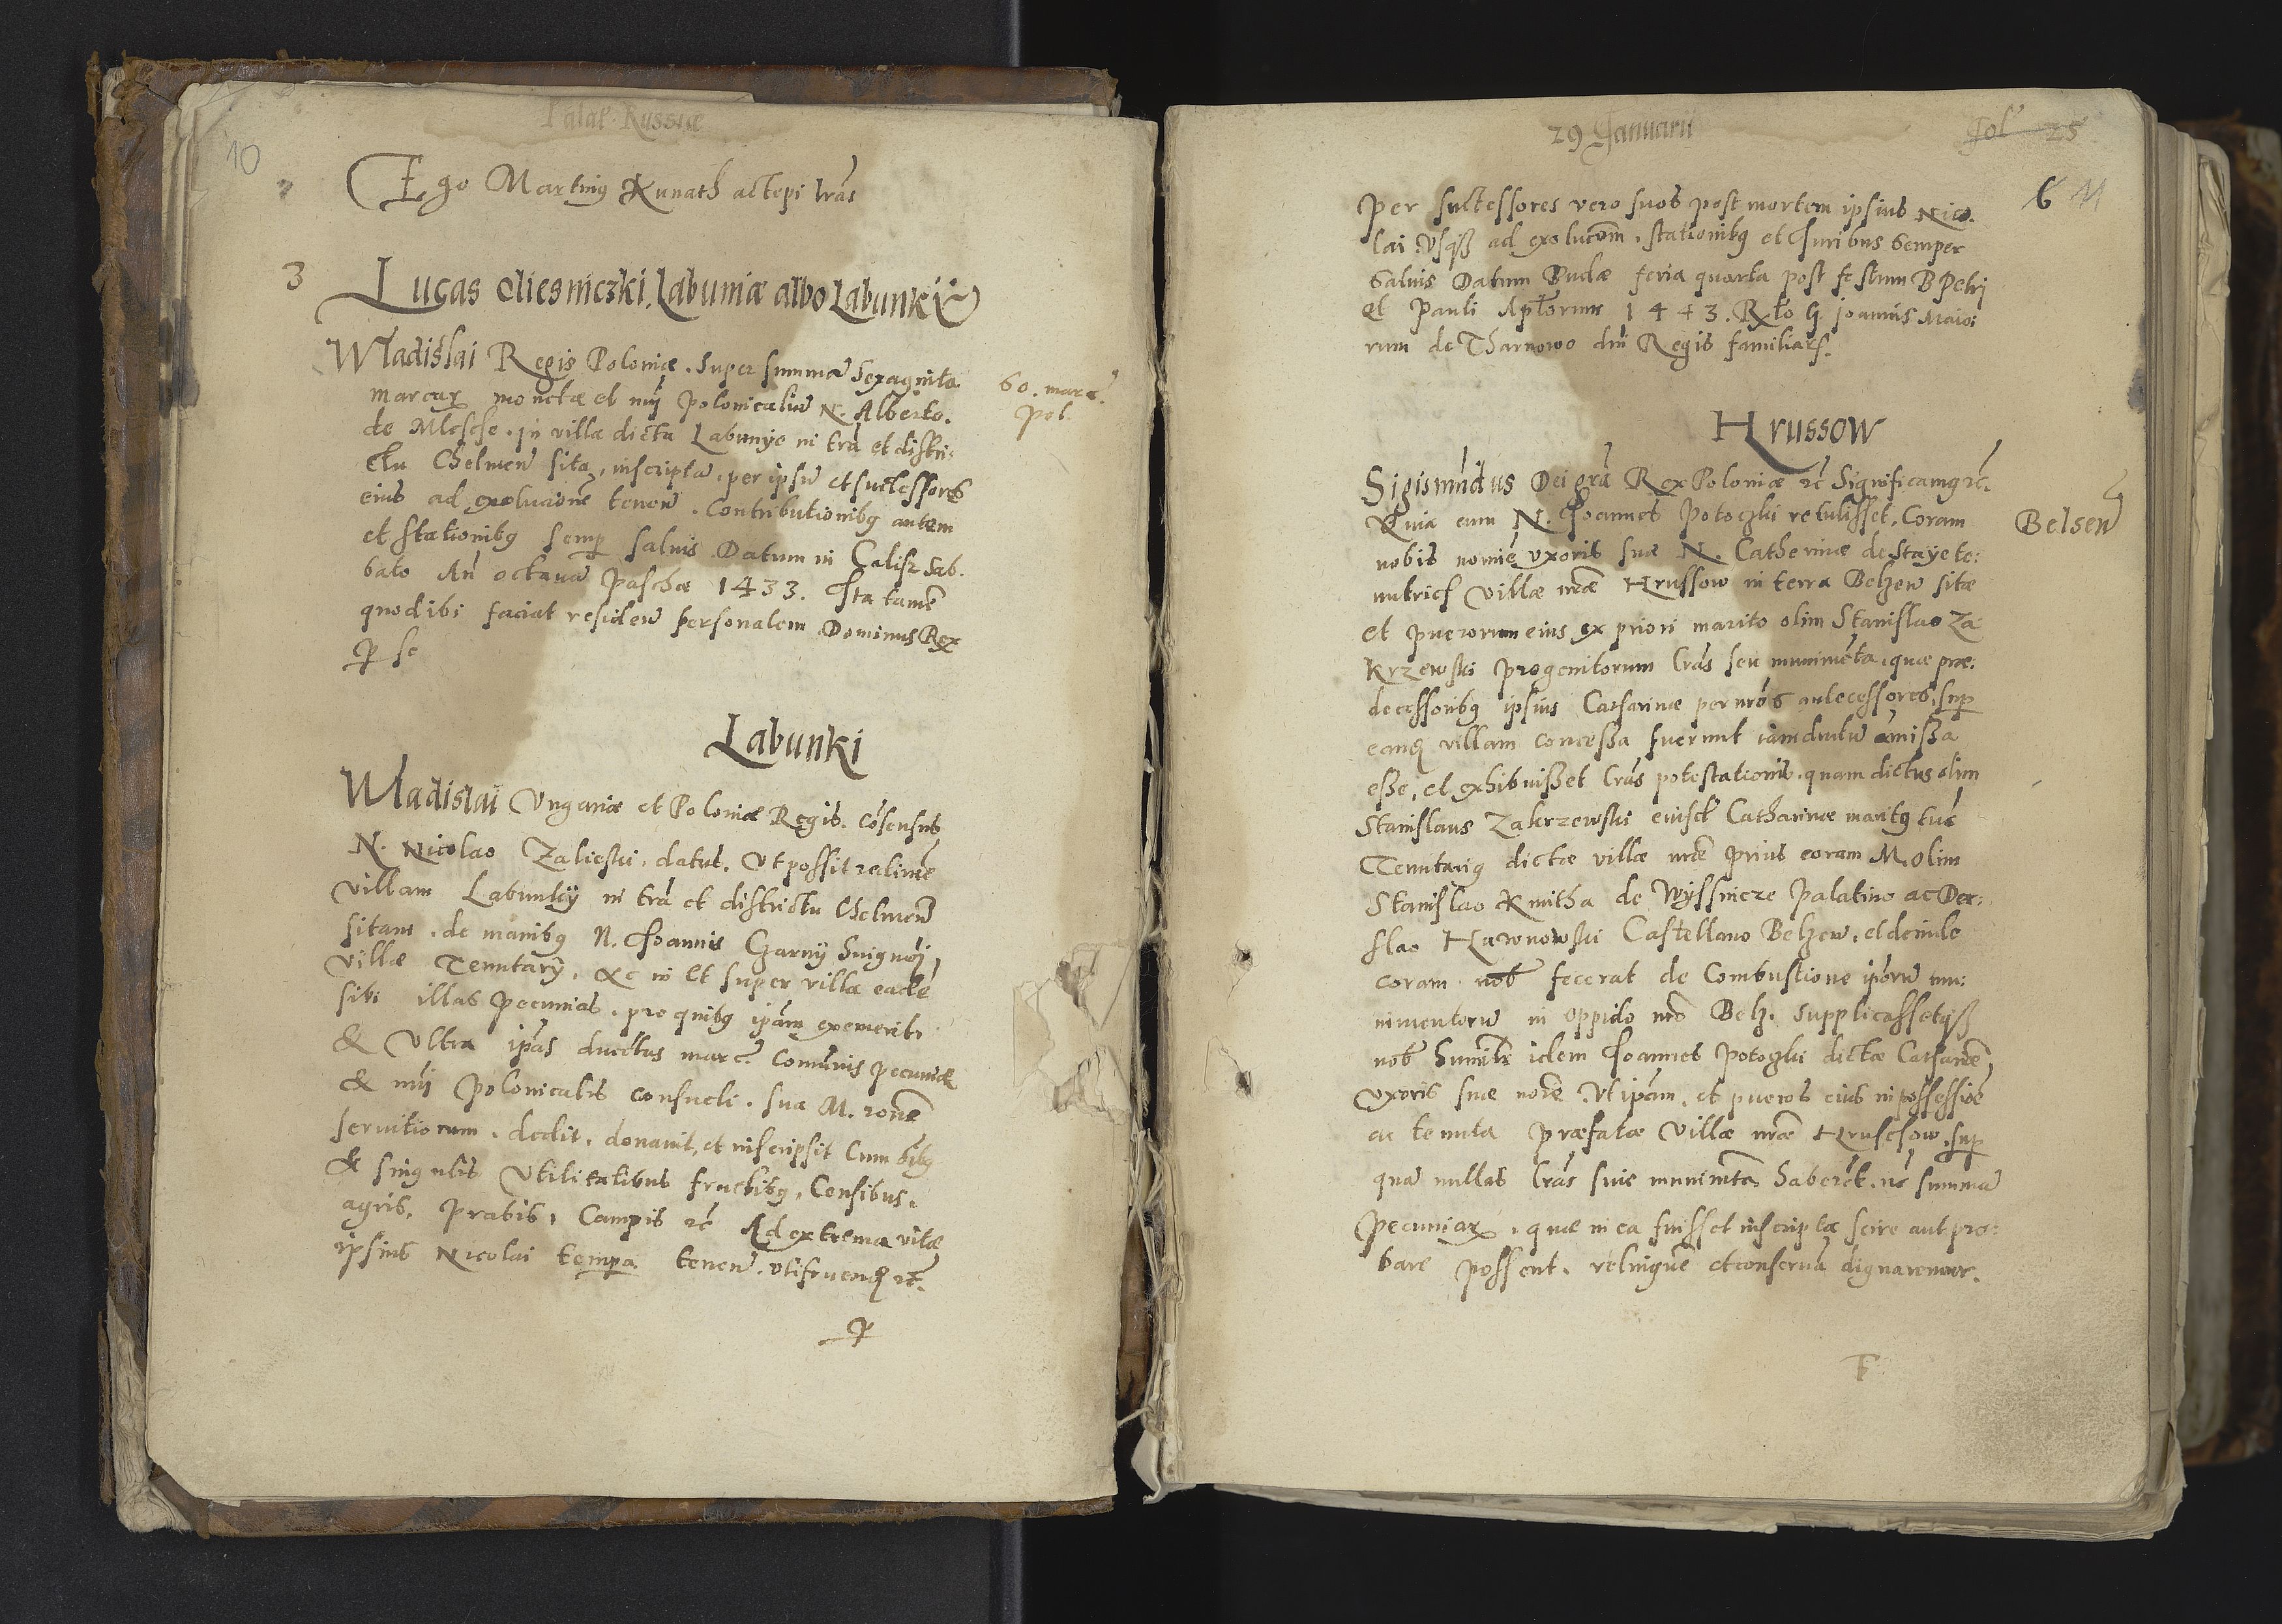 Palat. Russiæ
10
Ego Martinus Kunath accepi lrās
3
Lucas Oliesniczki. Labuniæ albo Labunki
Wladislai Regis Poloniæ. Super summā Sexaginta
60. marc.
marcarꝝ monetæ et nūi polonicaliū N. Alberto.
Pol.
de Mlesche. in villa dicta Labunye in trā et distri:
ctu Chelmeń sita, inscriptā, per ipsū et successores
eius ad exolucionē teneń. Contributionibꝰ autem
et stationibꝰ semꝑ salvis. Datum in Calisz Sab.
bato Añ octavā Paschæ 1433. Ita tamē
quod ibi faciat resideń personalem Dominus Rex
ꝑ se
Labunki
Wladislai Ungariæ et Poloniæ Regis. cōsensus
N. Nicolao Zalieski. datus. Ut possit redimē
villam Labunky in trā et districtu Chelmeń
sitam. de manibꝰ N. Joannis Czarny
villæ Tenutarÿ. &c in et super villa eadē
sibi illas pecunias. pro quibꝰ ipām exemerit
& Ultra ipās ducētas marc. comūnis pecuniæ
& nūi Polonicalis consueti. sua M. rōne
servitiorum. dedit, donavit, et inscripsit Cum oībꝰ
& singulis Utilitatibus fructibꝰ, Censibus,
agris, pratis, Campis ꝛc Ad extrema vitæ
ipsius Nicolai tempora teneń. utifrueńꝗ ꝛc.
ꝑ
29 Januarii
Fol 25
6 11
Per successores vero suos post mortem ipsius Nico.
lai Usqꝫ ad exolucōem. stationibꝰ et Juribus Semper
Salvis Datum Budæ feria quarta post festum B Petri
et Pauli Aptōrum 1443. Rtō G. Joannis Maio:
rum de Tharnowo dn̄i Regis familiarꝭ.
Hrussow
Sigismūdus Dei grā Rex Poloniæ ꝛc Significamꝰ ꝛc.
Quia cum N. Joannes Potoczki retulisset, Coram
Belseń
nobis nomiē uxoris suæ N. Catherinæ de Stay te:
nutricꝭ villæ nr̄æ Hrussow in terra Belzeń sitæ
et puerorum eius ex priori marito olim Stanislao Za
krzewski progenitorum lrās seu munimēta, quæ præ:
decessoribꝰ ipsius Catharinæ per nr̄ōs antecessores, suꝑ
eandꝫ villam concessa fuerunt iamdiutiū amissa
esse, et exhibuisset lrās potestationis. quam dictus olim
Stanislaus Zakrzewski eiusdē Catharinæ maritꝰ tūc
Tenutariꝰ dictæ villæ nr̄æ prius coram M. olim
Stanislao Kmitha de Wyssnicze Palatino ac Der:
slao Castellano Belzeń, et deinde
coram nob fecerat de Combustione ipōrū mu:
nimentorū in oppido nrō Belz. supplicassetqꝫ
nob humilr idem Joannes Potoczki dictæ Catharinē
uxoris suæ nōīe. Ut ipām, et pueros eius in possessiōe
ac tenuta præfatæ villæ nr̄æ Hruschow, suꝑ
qua nullas lrās sive munimēta haberēt. nec summā
Pecuniarꝝ, quæ in ea fuisset inscripta scire aut pro:
bare possent, relinquē et conservā dignaremur.